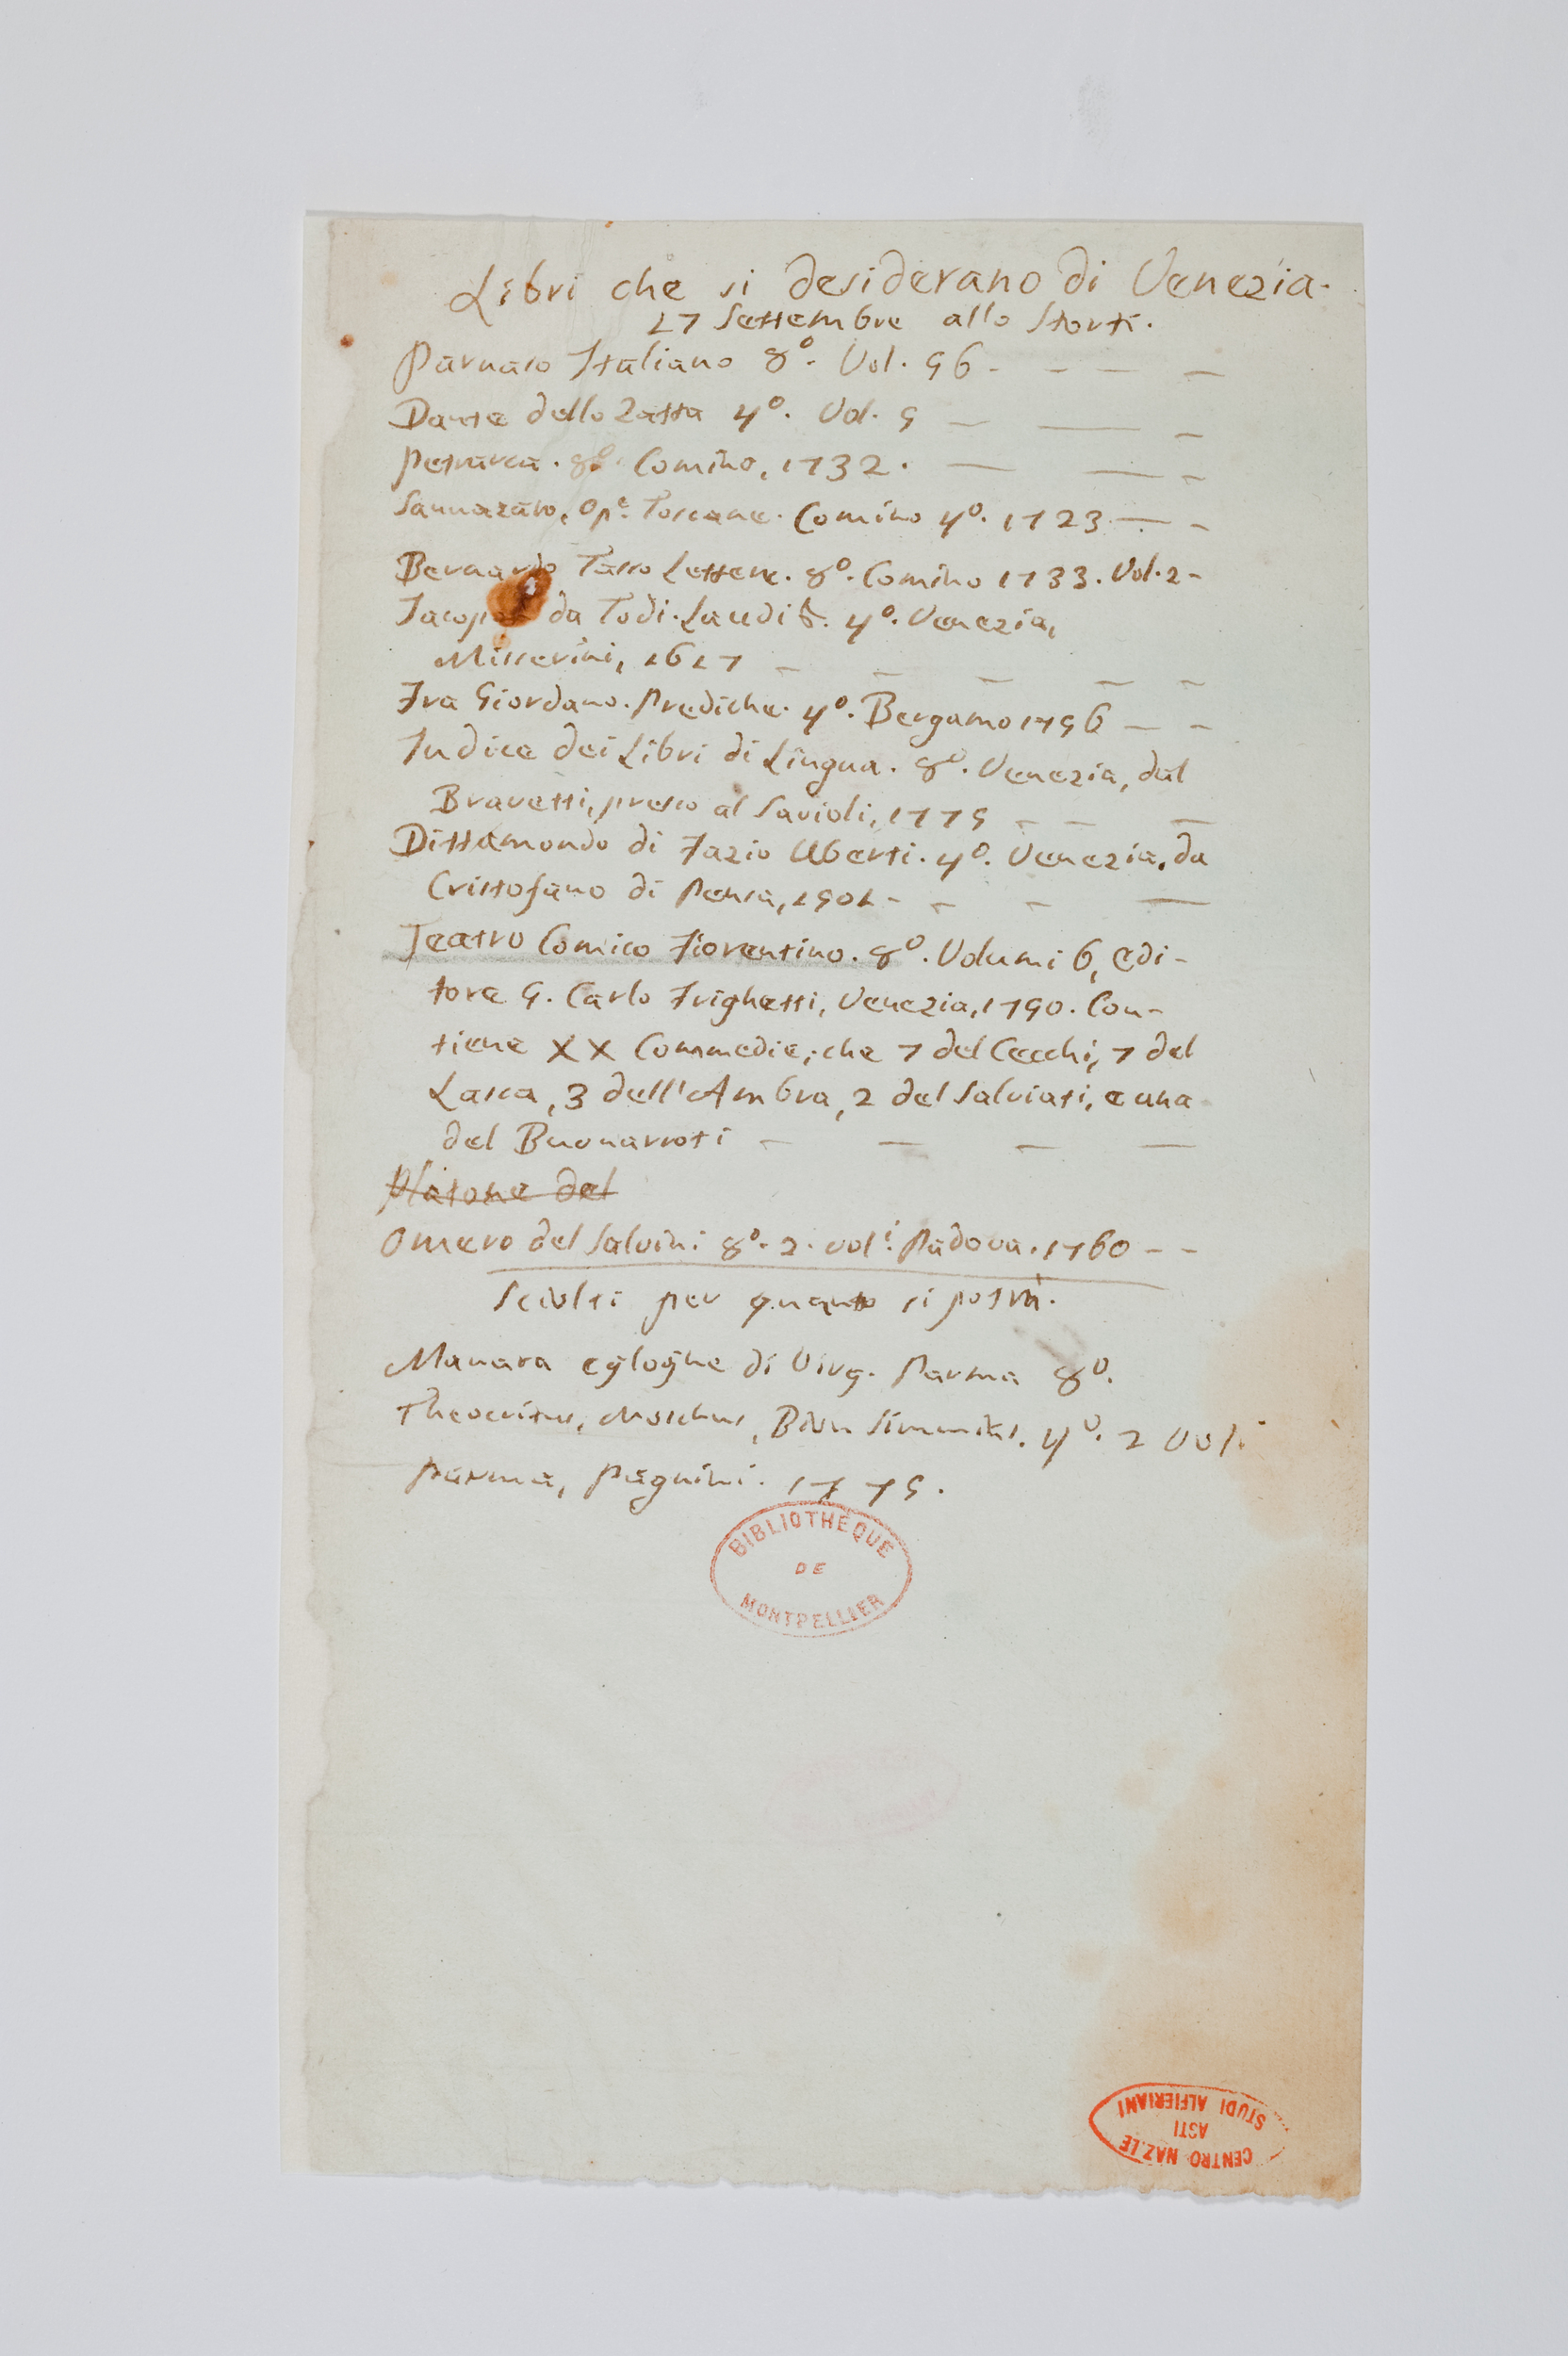 Libri che si desiderano di Venezia.
17 Settembre allo Storti.
Parnaso Italiano 8º. Vol. 56 - - - -
Dante dello Zatta 4º. Vol. 5 — — -
Petrarca. 8º. Comino, 1732. — — -
Sannazaro, Opᵉ. Toscane. Comino 4º. 1723 — -
Bernardo Tasso Lettere. 8º. Comino 1733. Vol. 2 -
Jacopone da Todi. Laudi &. 4º. Venezia,
Misserini, 1617 - - - - -
Fra Giordano. Prediche. 4º. Bergamo 1756 — -
Indice dei Libri di Lingua. 8º. Venezia, dal
Bravetti, presso al Savioli, 1775 - - —
Dittamondo di Fazio Uberti. 4º. Venezia, da
Cristofano di Pensa, 1501 - - - —
Teatro Comico Fiorentino. 8º. Volumi 6, Edi-
tore G. Carlo Frighetti, Venezia, 1750. Con-
tiene XX Commedie; che 7 del Cecchi, 7 del
Lasca, 3 dell'Ambra, 2 del Salviati, e una
del Buonarroti - — — —
Platone del
Omero del Salvini 8º. 2. volⁱ. Padova. 1760 - -
Sciolti per quanto si potrà.
Manara egloghe di Virg. Parma 8º.
Theocritus, Moschus, Bion Simmias. 4º. 2 Voli
Parma, Pagnini. 1775.
BIBLIOTHÈQUE
DE
MONTPELLIER
CENTRO NAZ.LE
ASTI
STUDI ALFIERIANI